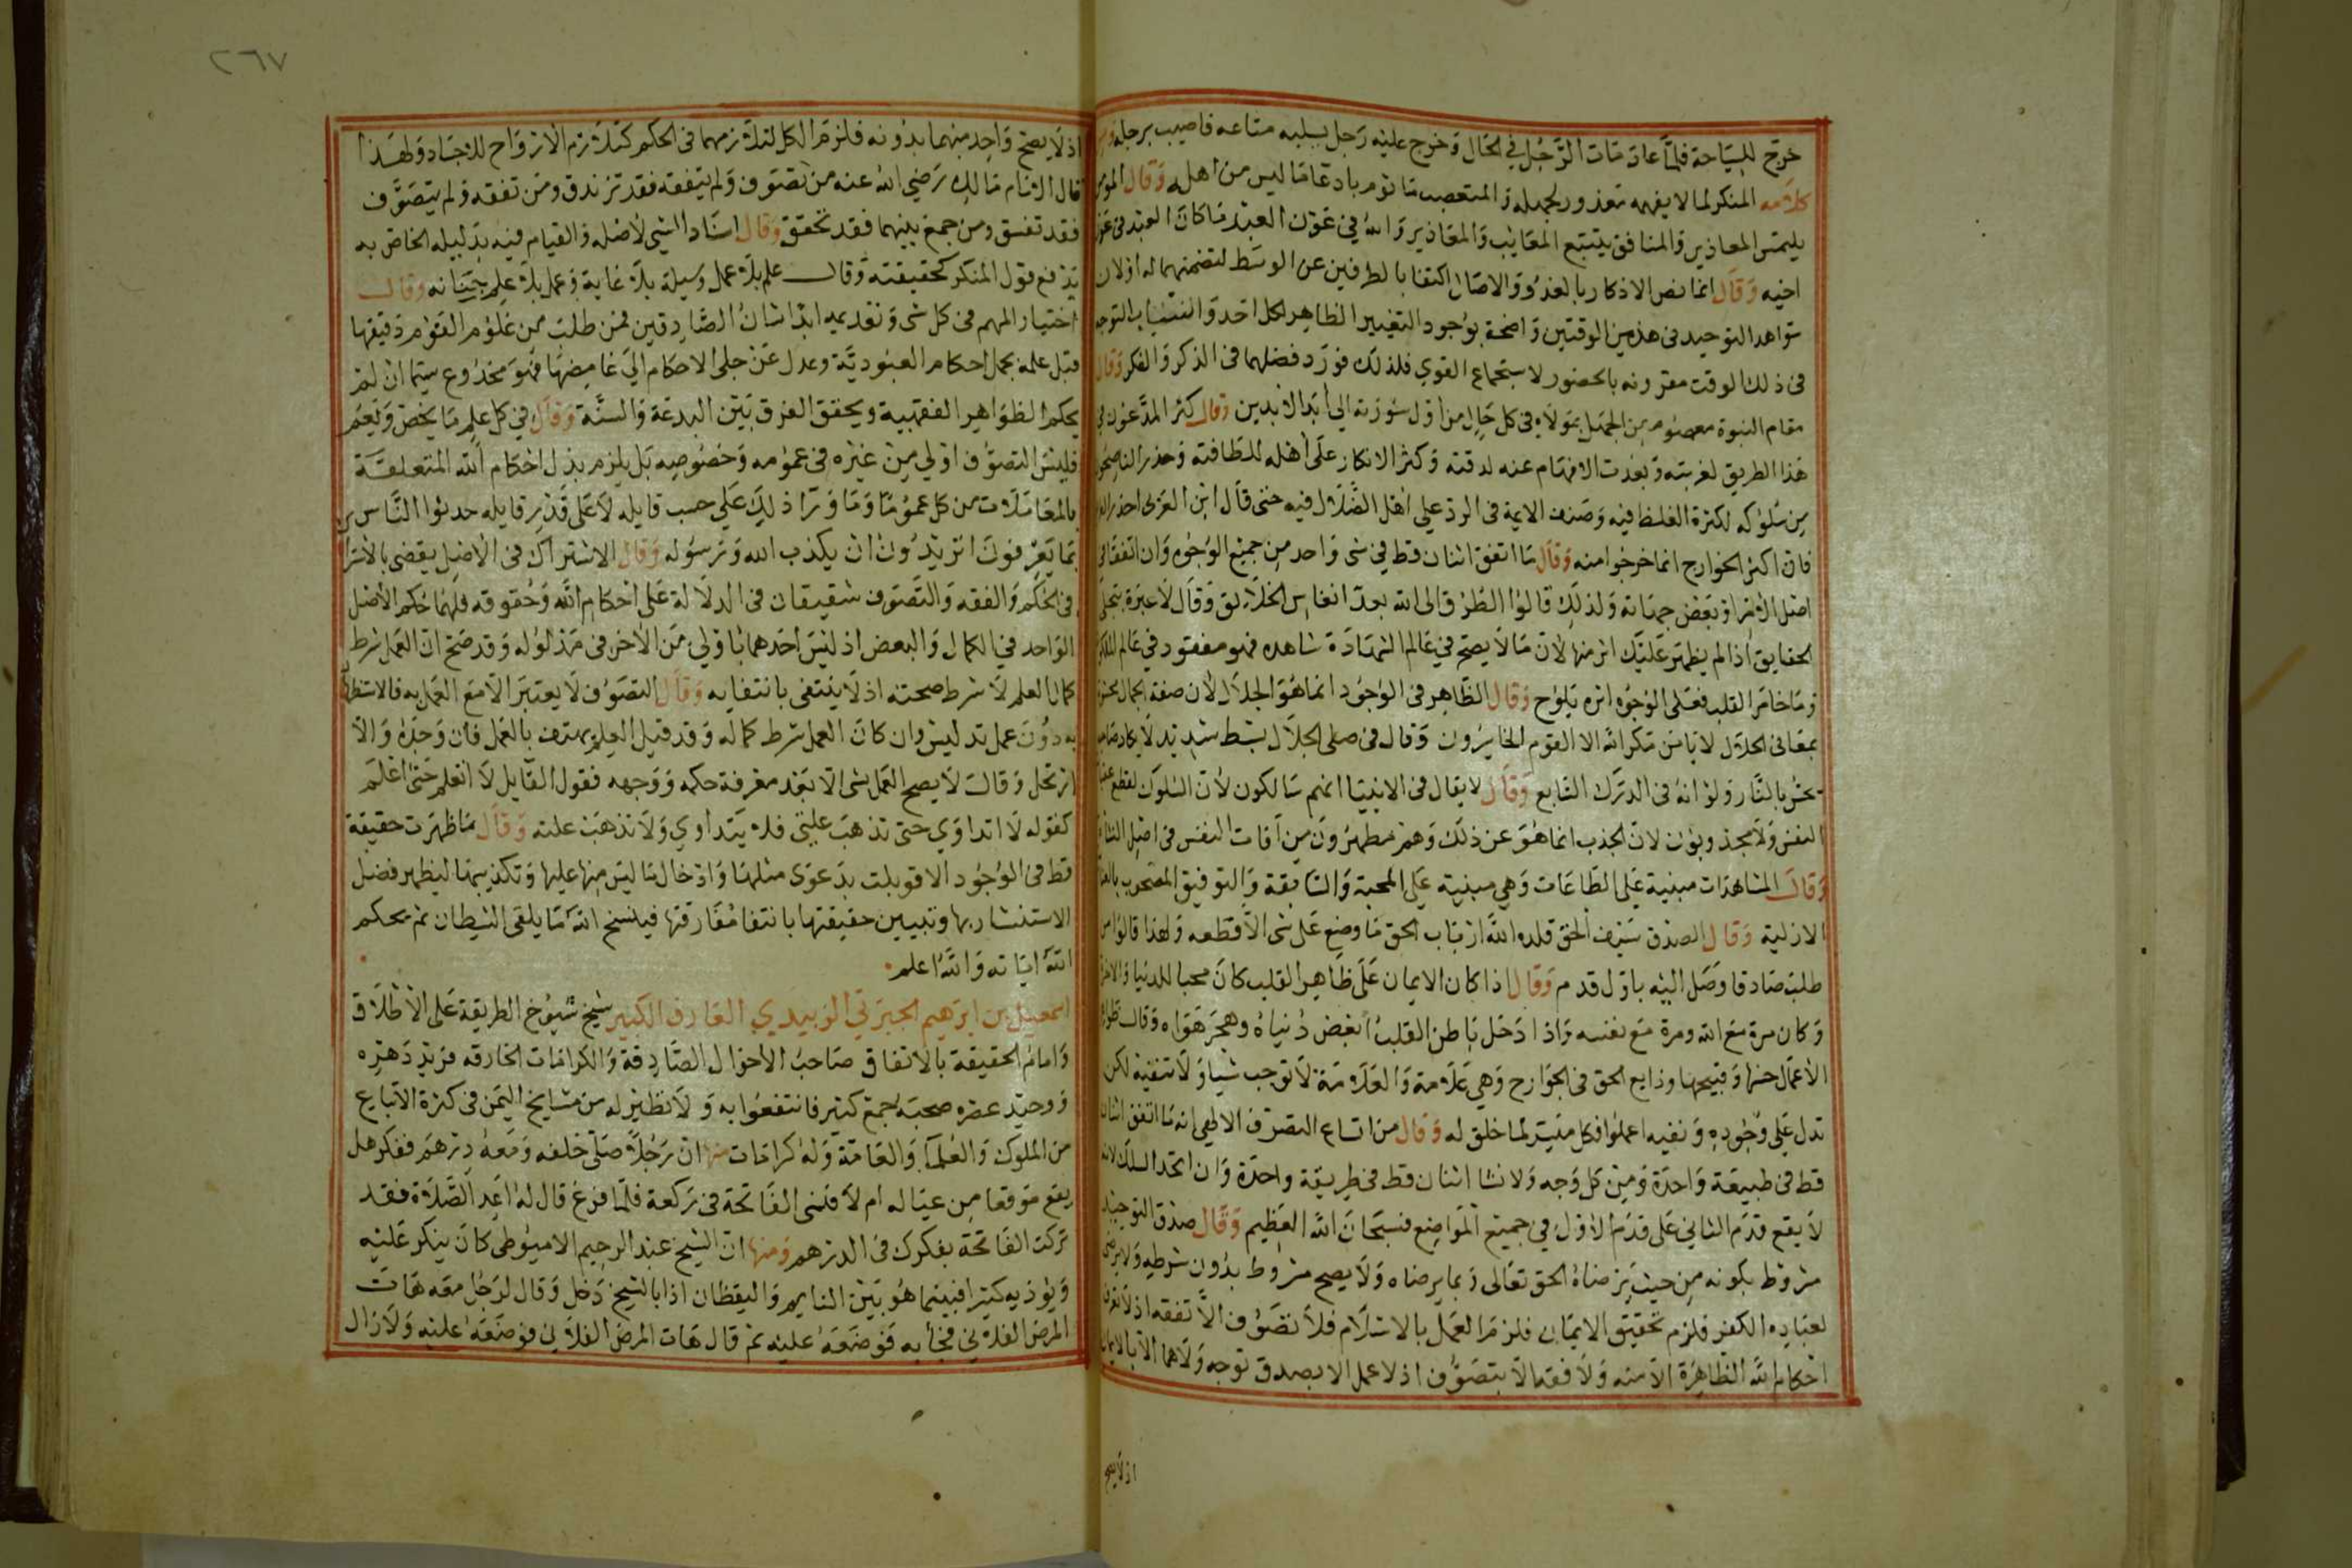 خرج للسياحة فلما عاد مات الرجل في الحال وخرج عليه رجل يسلبه متاعه فاصيب برجله
كلامه المنكر لما لا يفهمه معذور لجهله والمتعصب ماثوم بادعا ما ليس من اهله وقال المومن
يلتمس المعاذير والمنافق يتتبع المعايب والمعاذير والله في عون العبد ما كان العبد في عون
اخيه وقال انما نص الاذكار بالغدو والاصال اكتفا بالطرفين عن الوسط لتضمنهما له اولان
شواهد التوحيد في هذين الوقتين واضحة بوجود التغيير الظاهر لكل احد
في ذلك الوقت مقرونه بالحضور لاستجماع القوي فلذلك فورد فضلهما في الذكر والفكر وقال
مقام النبوة معصوم من الجهل بمولاه في كل حال من اول شوزنه الي أبد الابدين وقال كثر المدعون في
هذا الطريق لغربته وبعدت الافهام عنه لدقته وكثر الانكار على أهله للطافته وحذر الناصحون
من سلوكه لكثرة الغلط فيه وصنف الايمة في الرد علي اهل الضلال فيه حتى قال ابن العربي احذر
فان اكثر الخوارج انما خرجوا منه وقال ما اتفق اثنان قط في شي واحد من جميع الوجوه وان اتفقا في
اصل الامر او بعض جهاته ولذلك قالوا الطرق الى الله بعدد انفاس الخلائق وقال لا عبرة بتجلي
الحقايق اذا لم يظهر عليك اثر منها لان ما لا يصح في عالم الشهادة شاهده فهو مفقود في عالم الملكوت
وما خامر القلب فعلى الوجوه اثره يلوح وقال الظاهر في الوجود انما هو الجلال لان صفة الجمال
بمعاني الجلال لا يامن مكر الله الا القوم الخاسرون وقال في صلي الجلال بسط شديد لا يكاد
يحس بالنار ولو انه في الدرك السابع وقال لا يقال في الانبيا انهم سالكون لان السلوك لقطع
النفس ولا مجذوبون لان الجذب انما هو عن ذلك وهم مطهرون من آفات النفس في اصل
وقال المشاهدات مبنية على الطاعات وهي مبنية على المحبة والسابقة والتوفيق المصحوب
الازلية وقال الصدق سيف الحق قلده الله ارباب الحق ما وضع على شي الا قطعه ولهذا قالوا من
طلب صادقا وصل اليه باول قدم وقال اذا كان الايمان على ظاهر القلب كان محبا للدنيا والاخرة
وكان مرة مع الله ومرة مع نفسه واذا ادخل باطن القلب ابغض دنياه وهجر هواه وقال
الاعمال حسنها وقبيحها ودايع الحق في الجوارح وهي علامة والعلامة لا توجب شيا ولا تنفيه لكن
تدل على وجوده ونفيه اعملوا فكل ميسر لما خلق له وقال من اتساع التصرف الالهي انه ما اتفق اثنان
قط في طبيعة واحدة ومن كل وجه ولا نشا اثنان قط في طريقة واحدة وان اتحد السلك
لا يقع قدم الثاني على قدم الاول في جميع المواضع فسبحان الله العظيم وقال صدق التوجه
مشروط بكونه من حيث يرضاه الحق تعالى وبما يرضاه ولا يصح مشروط بدون شرطه ولا يرضى
لعباده الكفر فلزم تحقيق الايمان فلزم العمل بالاسلام فلا تصوف الا بفقه اذ لا تعرف
احكام الله الظاهرة الا منه ولا فقه الا بتصوف اذ لا عمل الا بصدق توجه ولا هما الا بالايمان
اذ لا يصح
٢٦٧
اذ لا يصح واحد منهما بدونه فلزم الكل لتلازمهما في الحكم كتلازم الارواح للاجساد ولهذا
قال الامام مالك رضي الله عنه من تصوف ولم يتفقه فقد تزندق ومن تفقه ولم يتصوف
فقد تفسق ومن جمع بينهما فقد تحقق وقال اسناد الشي لاصله والقيام فيه بدليله الخاص به
يدفع قول المنكر كحقيقته وقال علم بلا عمل وسيلة بلا غاية وعمل بلا علم جنانه وقال
اختيار المهم في كل شي وتقديمه ابدا شان الصادقين فمن طلب من علوم القوم دقيقها
قبل علمه بجمل احكام العبودية وعدل عن جلي الاحكام الي غامضها فهو مخدوع سيما ان لم
يحكم الظواهر الفقهية ويحقق الفرق بين البدعة والسنة وقال في كل علم ما يخص ويعم
فليس التصوف اولي من غيره في عمومه وخصوصه بل يلزم بذل احكام الله المتعلقة
بالمعاملات من كل عموما وما ورا ذلك علي حسب قايله لا على قدر قايله حدثوا الناس
بما يعرفون اتريدون ان يكذب الله ورسوله وقال الاشتراك في الاصل يقضي بالاشتراك
في الحكم والفقه والتصوف شقيقان في الدلالة على احكام الله وحقوقه فلهما حكم الاصل
الواحد في الكمال والبعض اذ ليس احدهما باولي من الاخر في مدلوله وقد صح ان العمل شرط
كمال العلم لا شرط صحته اذ لا ينتفي بانتفايه وقال التصوف لا يعتبر الا مع العمل به فالاستظهار
به دون عمل تدليس وان كان العمل شرط كماله وقد قيل العلم يهتف بالعمل فان وجده والا
ارتحل وقال لا يصح العمل بشي الا بعد معرفة حكمه ووجهه فقول القايل لا اتعلم حتى اعمل
كقوله لا اتداوي حتى تذهب علتي فلا يتداوي ولا تذهب علته وقال ما ظهرت حقيقة
قط في الوجود الا قوبلت بدعوى مثلها وادخال ما ليس منها عليها وتكذيبها ليظهر فضل
الاستنشار بها وتبيين حقيقتها بانتفا مفارقتها فينسخ الله ما يلقي الشيطان ثم يحكم
الله اياته والله اعلم
اسمعيل بن ابرهيم الجبرتي الزبيدي العارف الكبير شيخ شيوخ الطريقة على الاطلاق
وامام الحقيقة بالاتفاق صاحب الاحوال الصادقة والكرامات الخارقه فريد دهره
ووحيد عصره صحبه جمع كثير فانتفعوا به ولا نظير له من مشايخ اليمن في كثرة الاتباع
من الملوك والعلما والعامة وله كرامات منها ان رجلا صلى خلفه ومعه درهم ففكر هل
يقع موقعا من عياله ام لا فنسى الفاتحة في ركعة فلما فرغ قال له اعد الصلاة فقد
تركت الفاتحة بفكرك في الدرهم ومنها ان الشيخ عبد الرحيم الاميوطي كان ينكر عليه
ويوذيه كثيرا فبينما هو بين النايم واليقظان اذا بالشيخ دخل وقال لرجل معه هات
المرض الفلاني فجا به فوضعه عليه ثم قال هات المرض الفلاني فوضعه عليه ولازال